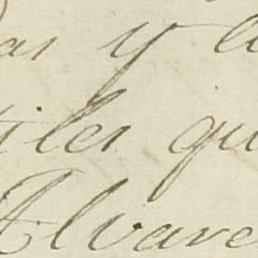 as y a
tiles qu
Alvare